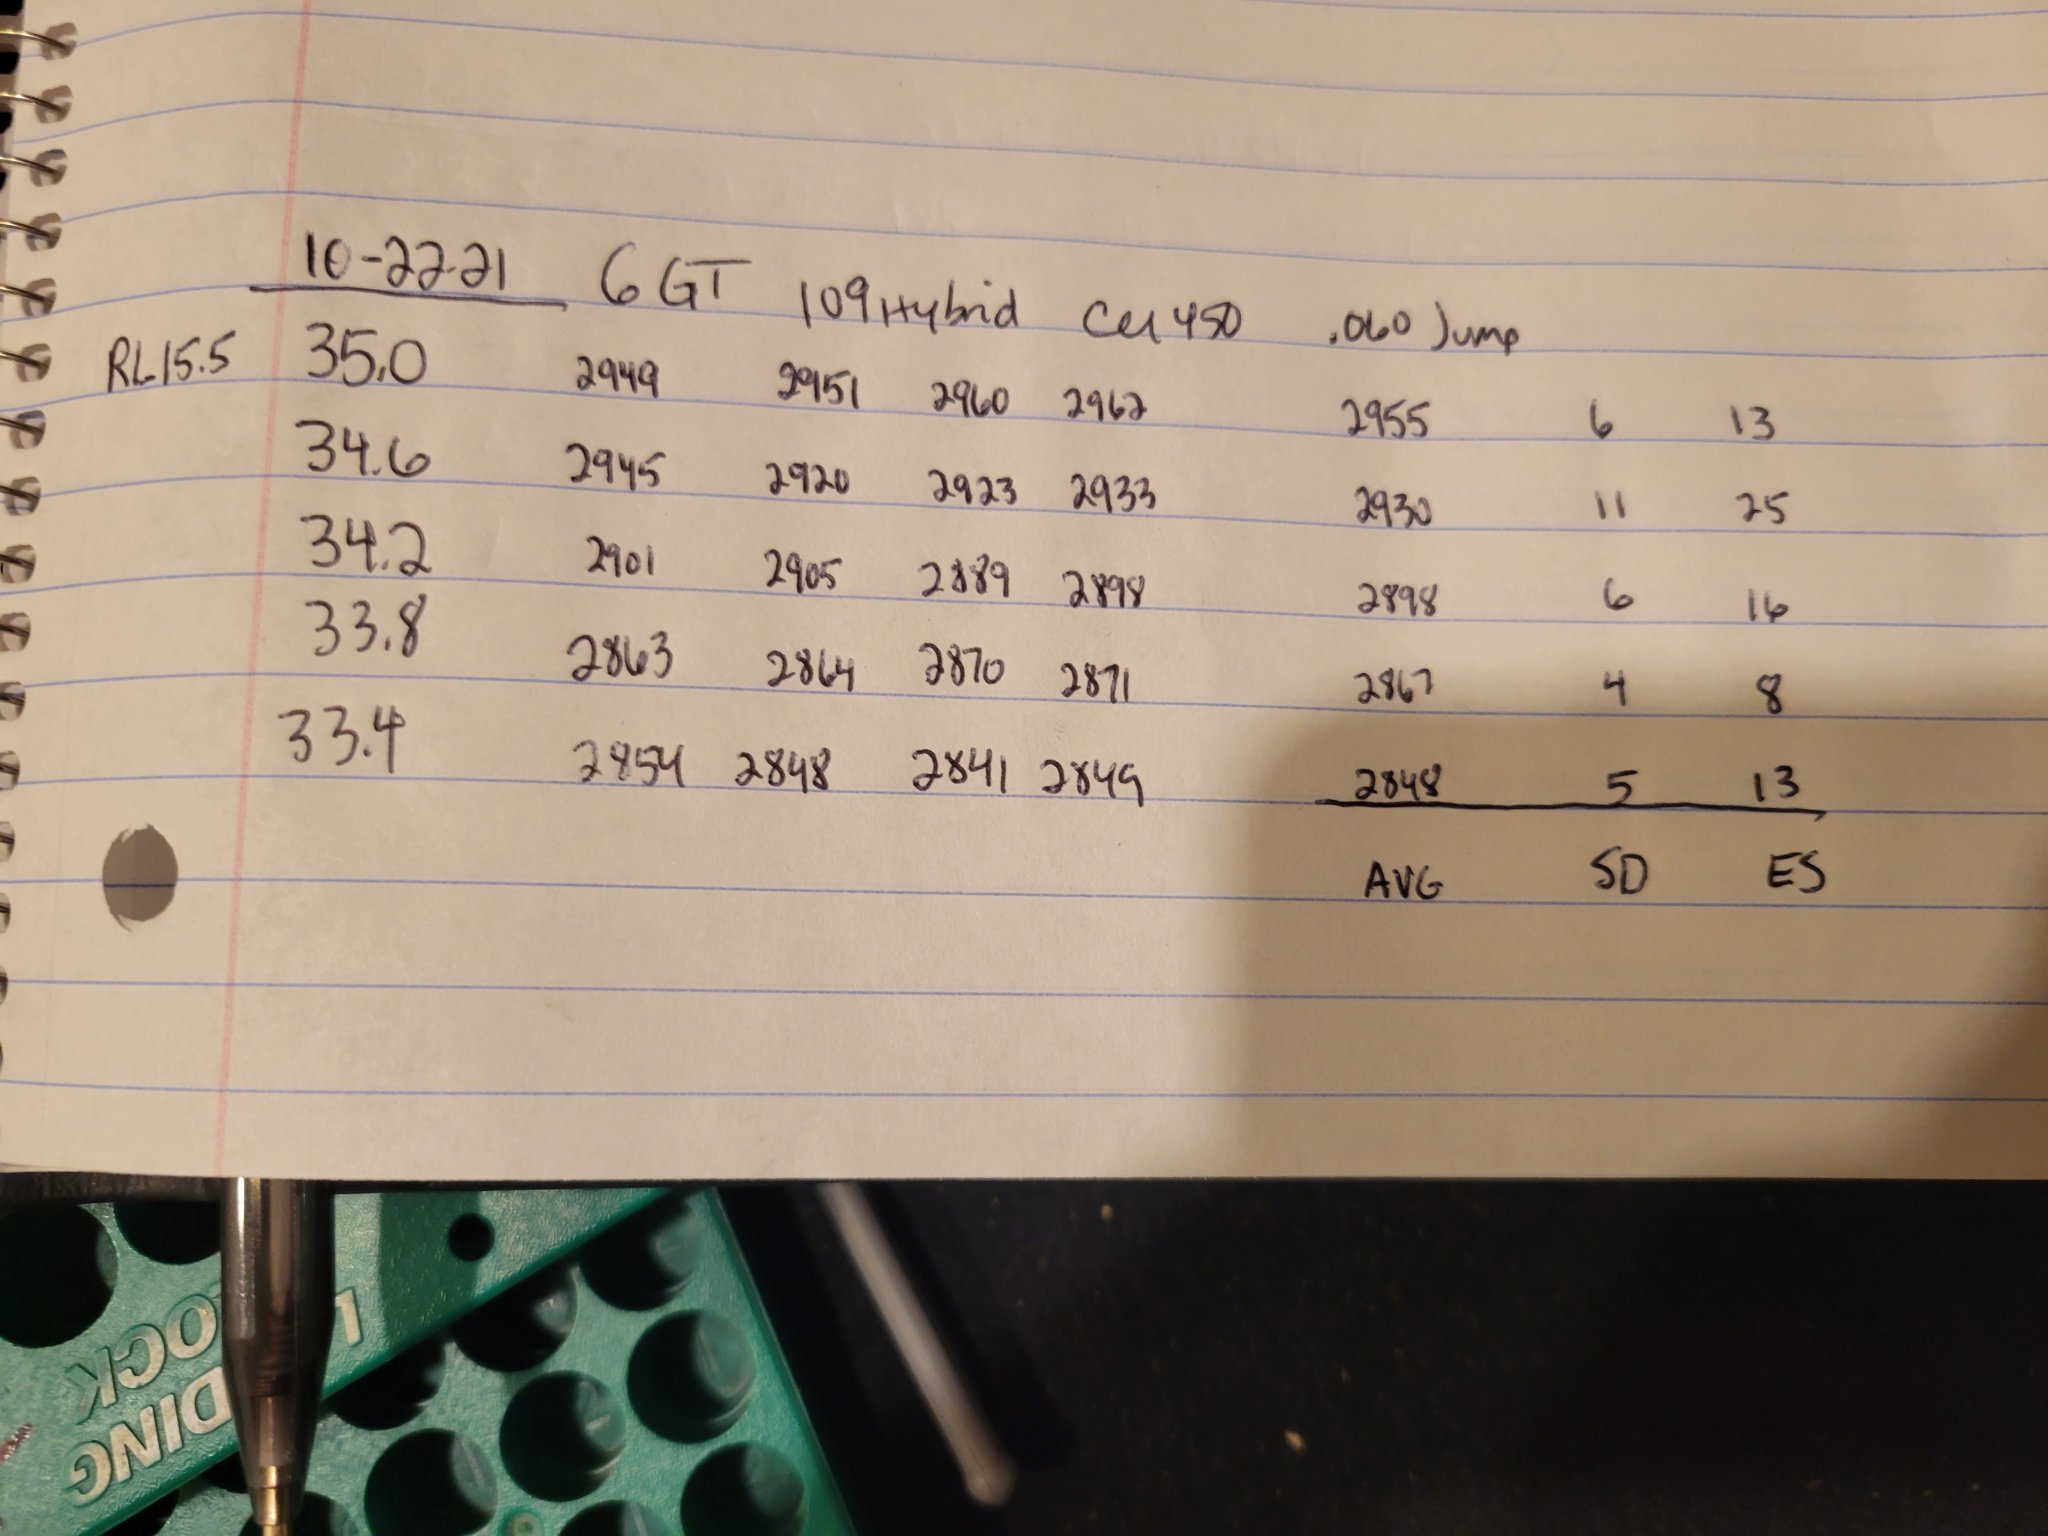 10-22-21 6GT 109 Hybrid CCI 450 .060 Jump
RL15.5 35.0 2949 2951 2960 2962 2955 6 13
34.6 2945 2920 2923 2933 2930 11 25
34.2 2901 2905 2889 2898 2898 6 16
33.8 2863 2864 2870 2871 2867 4 8
33.4 2854 2848 2841 2849 2848 5 13
AVG SD ES
L
OCK
DING